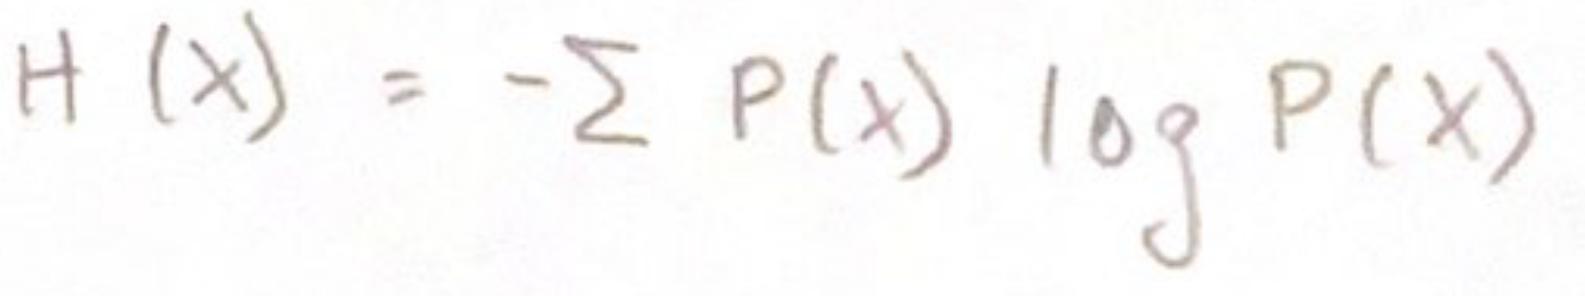 H (X) = -∑ P(X) log P(X)